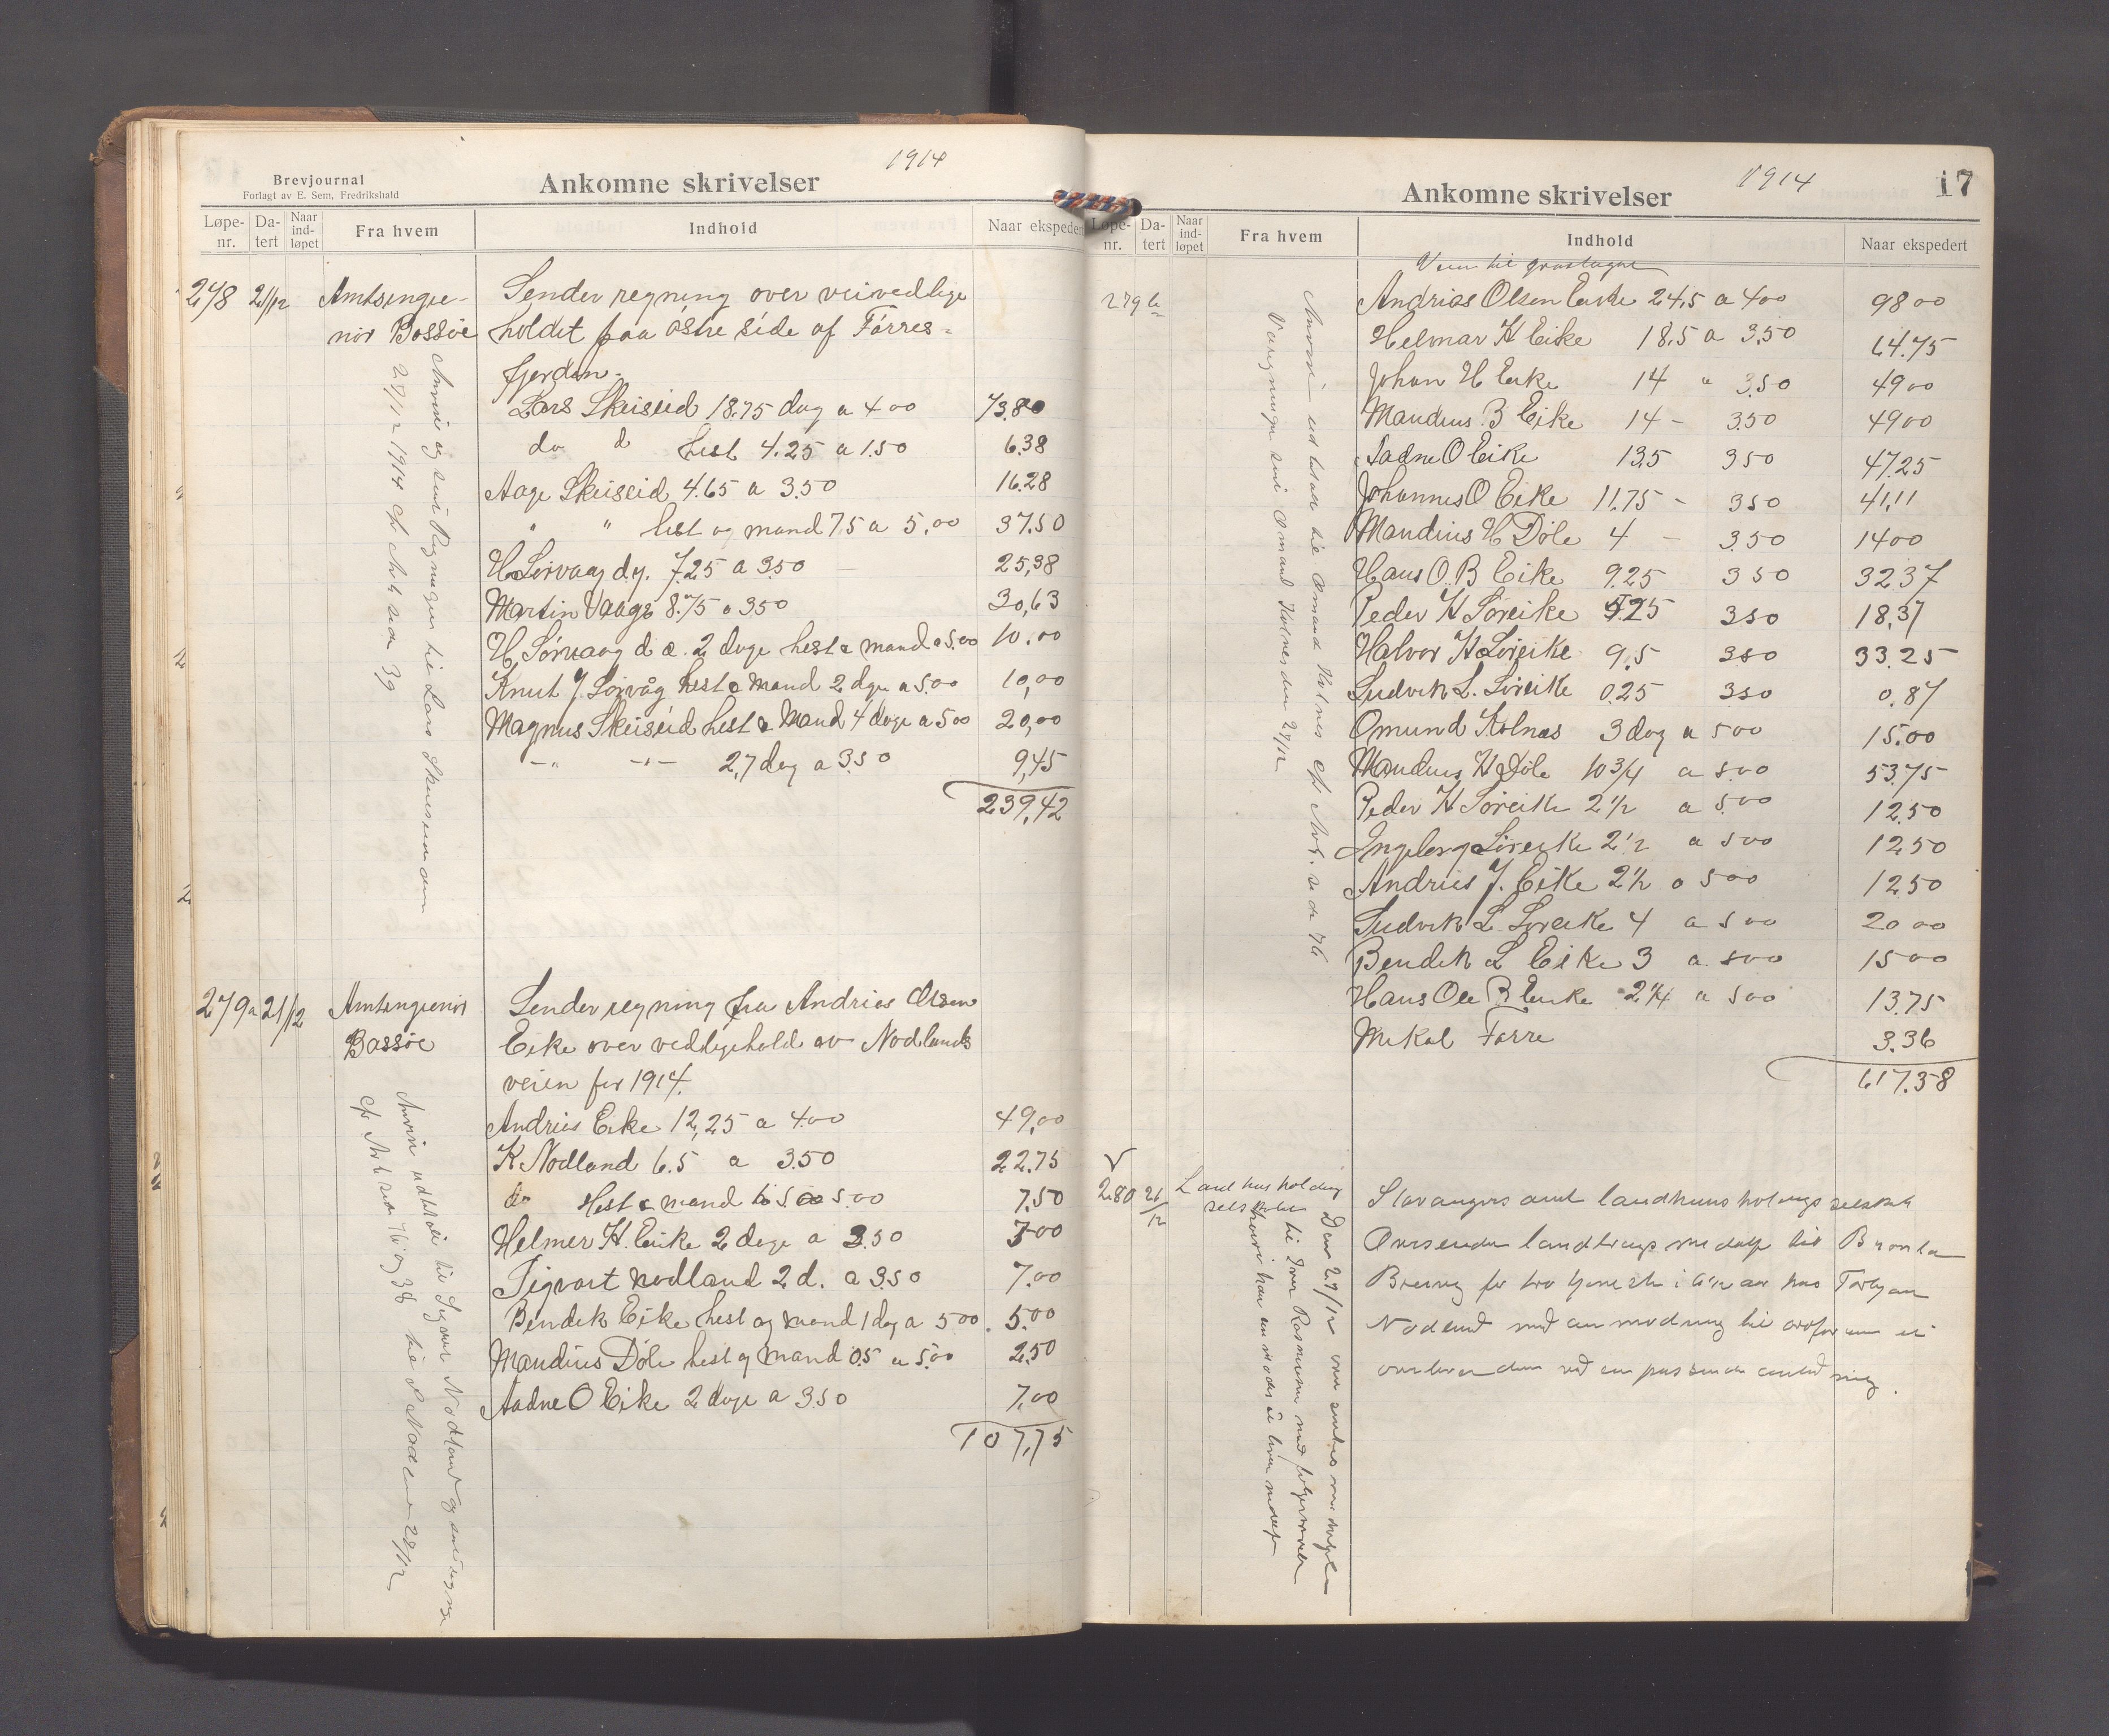 1914
Brevjournal
Forlagt av E. Sem, Fredrikshald
Ankomne skrivelser
Løpe-nr. Da-tert Naar ind-løpet Fra hvem Indhold Naar ekspedert
278 21/12 Amtsingie- Sender regning over veivedlige
niør Bassøe holdet paa østre side af Førres-
fjorden.
Lars Skeiseid 18.75 dag a 4 00 73.80
do d hest 4.25 a 1.50 6.38
Aage Skeiseid 4.65 a 3.50 16.28
" " hest og mand 7.5 a 5.00 37.50
H Sørvaag d.y. 7.25 a 3.50 25,38
Martin Vaage 8.75 a 3.50 30,63
H. Sørvaag d æ. 2 dage hest & mand a 5.00 10.00
Knut J. Sørvåg hest & mand 2 dge a 5.00 10,00
Magnus Skeiseid hest & Mand 4 dage a 5 00 20,00
-"- -"- 2,7 dag a 3.50 9,45
239,42
Anvise og sendt Regningen til Lars Skeiseid den
28/12 1914 cfr Avb side 39
279a 21/12 Amtsingeniør Sender regning fra Andrias Olsen
Bassøe Eike over vedligehold av Nodlands
veien for 1914.
Andries Eike 12,25 a 4.00 49,00
K. Nodland 6.5 a 3.50 22.75
do Hest & mand 1.5 a 5.00 7,50
Helmer H. Eike 2 dage a 3.50 7.00
Sigvart Nodland 2 d. a 3.50 7.00
Bendik Eike hest og mand 1 dag a 5 00. 5.00
Mandius Døle hest og mand 0.5 a 5.00 2.50
Aadne O Eike 2 dage a 3.50 7,00
107,75
Anvise udbetalt til Sigvart Nodland og
cfr Avb side 76 og 38 28/12
Ankomne skrivelser
1914
17
Løpe-nr. Da-tert Naar ind-løpet Fra hvem Indhold Naar ekspedert
Veien til
279 b Andrias Olsen Eike 24,5 a 4 00 98 00
Helmar H Eike 18.5 a 3.50 64.75
Johan H Eike 14 " 3.50 49 00
Mandius B Eike 14 - 3.50 49 00
Aadne O Eike 13.5 3 50 47.25
Johannes O Eike 11.75 - 3 50 41,11
Mandius H Døle 4 - 3.50 14 00
Hans O. B Eike 9.25 3 50 32 37
Peder H Søreike 5.25 3 50 18,37
Halvor H Søreike 9.5 3 50 33.25
Ludvik L. Søreike 0.25 3 50 0.87
Omund Kolnes 3 dag a 5 00 15.00
Mandius H Døle 10 3/4 a 5.00 53.75
Peder H Søreike 2 1/2 a 5.00 12.50
Ingeborg Søreike 2 1/2 a 5 00 12.50
Andries J. Eike 2 1/2 a 5 00 12.50
Ludvik L. Søreike 4 a 5 00 20 00
Bendik L Eike 3 a 5 00 15 00
Hans Ole B Eike 2 3/4 a 5 00 13.75
Mikal Førre 3.36
617.38
Anvise udbetalt til Omund Kolnes cfr Avb. side 76
Omund Kolnes den 28/12
280 21/12 Landhusholdnings selskabet Stavangers amt landhusholdnings selskab
Oversender
for tro tjeneste i 6 1/2 aar hos Torbjørn
Nodland med anmodning til ordføreren at
overlevere den ved en passende anledning.
Den 29/12
til Iver Rasmussen med